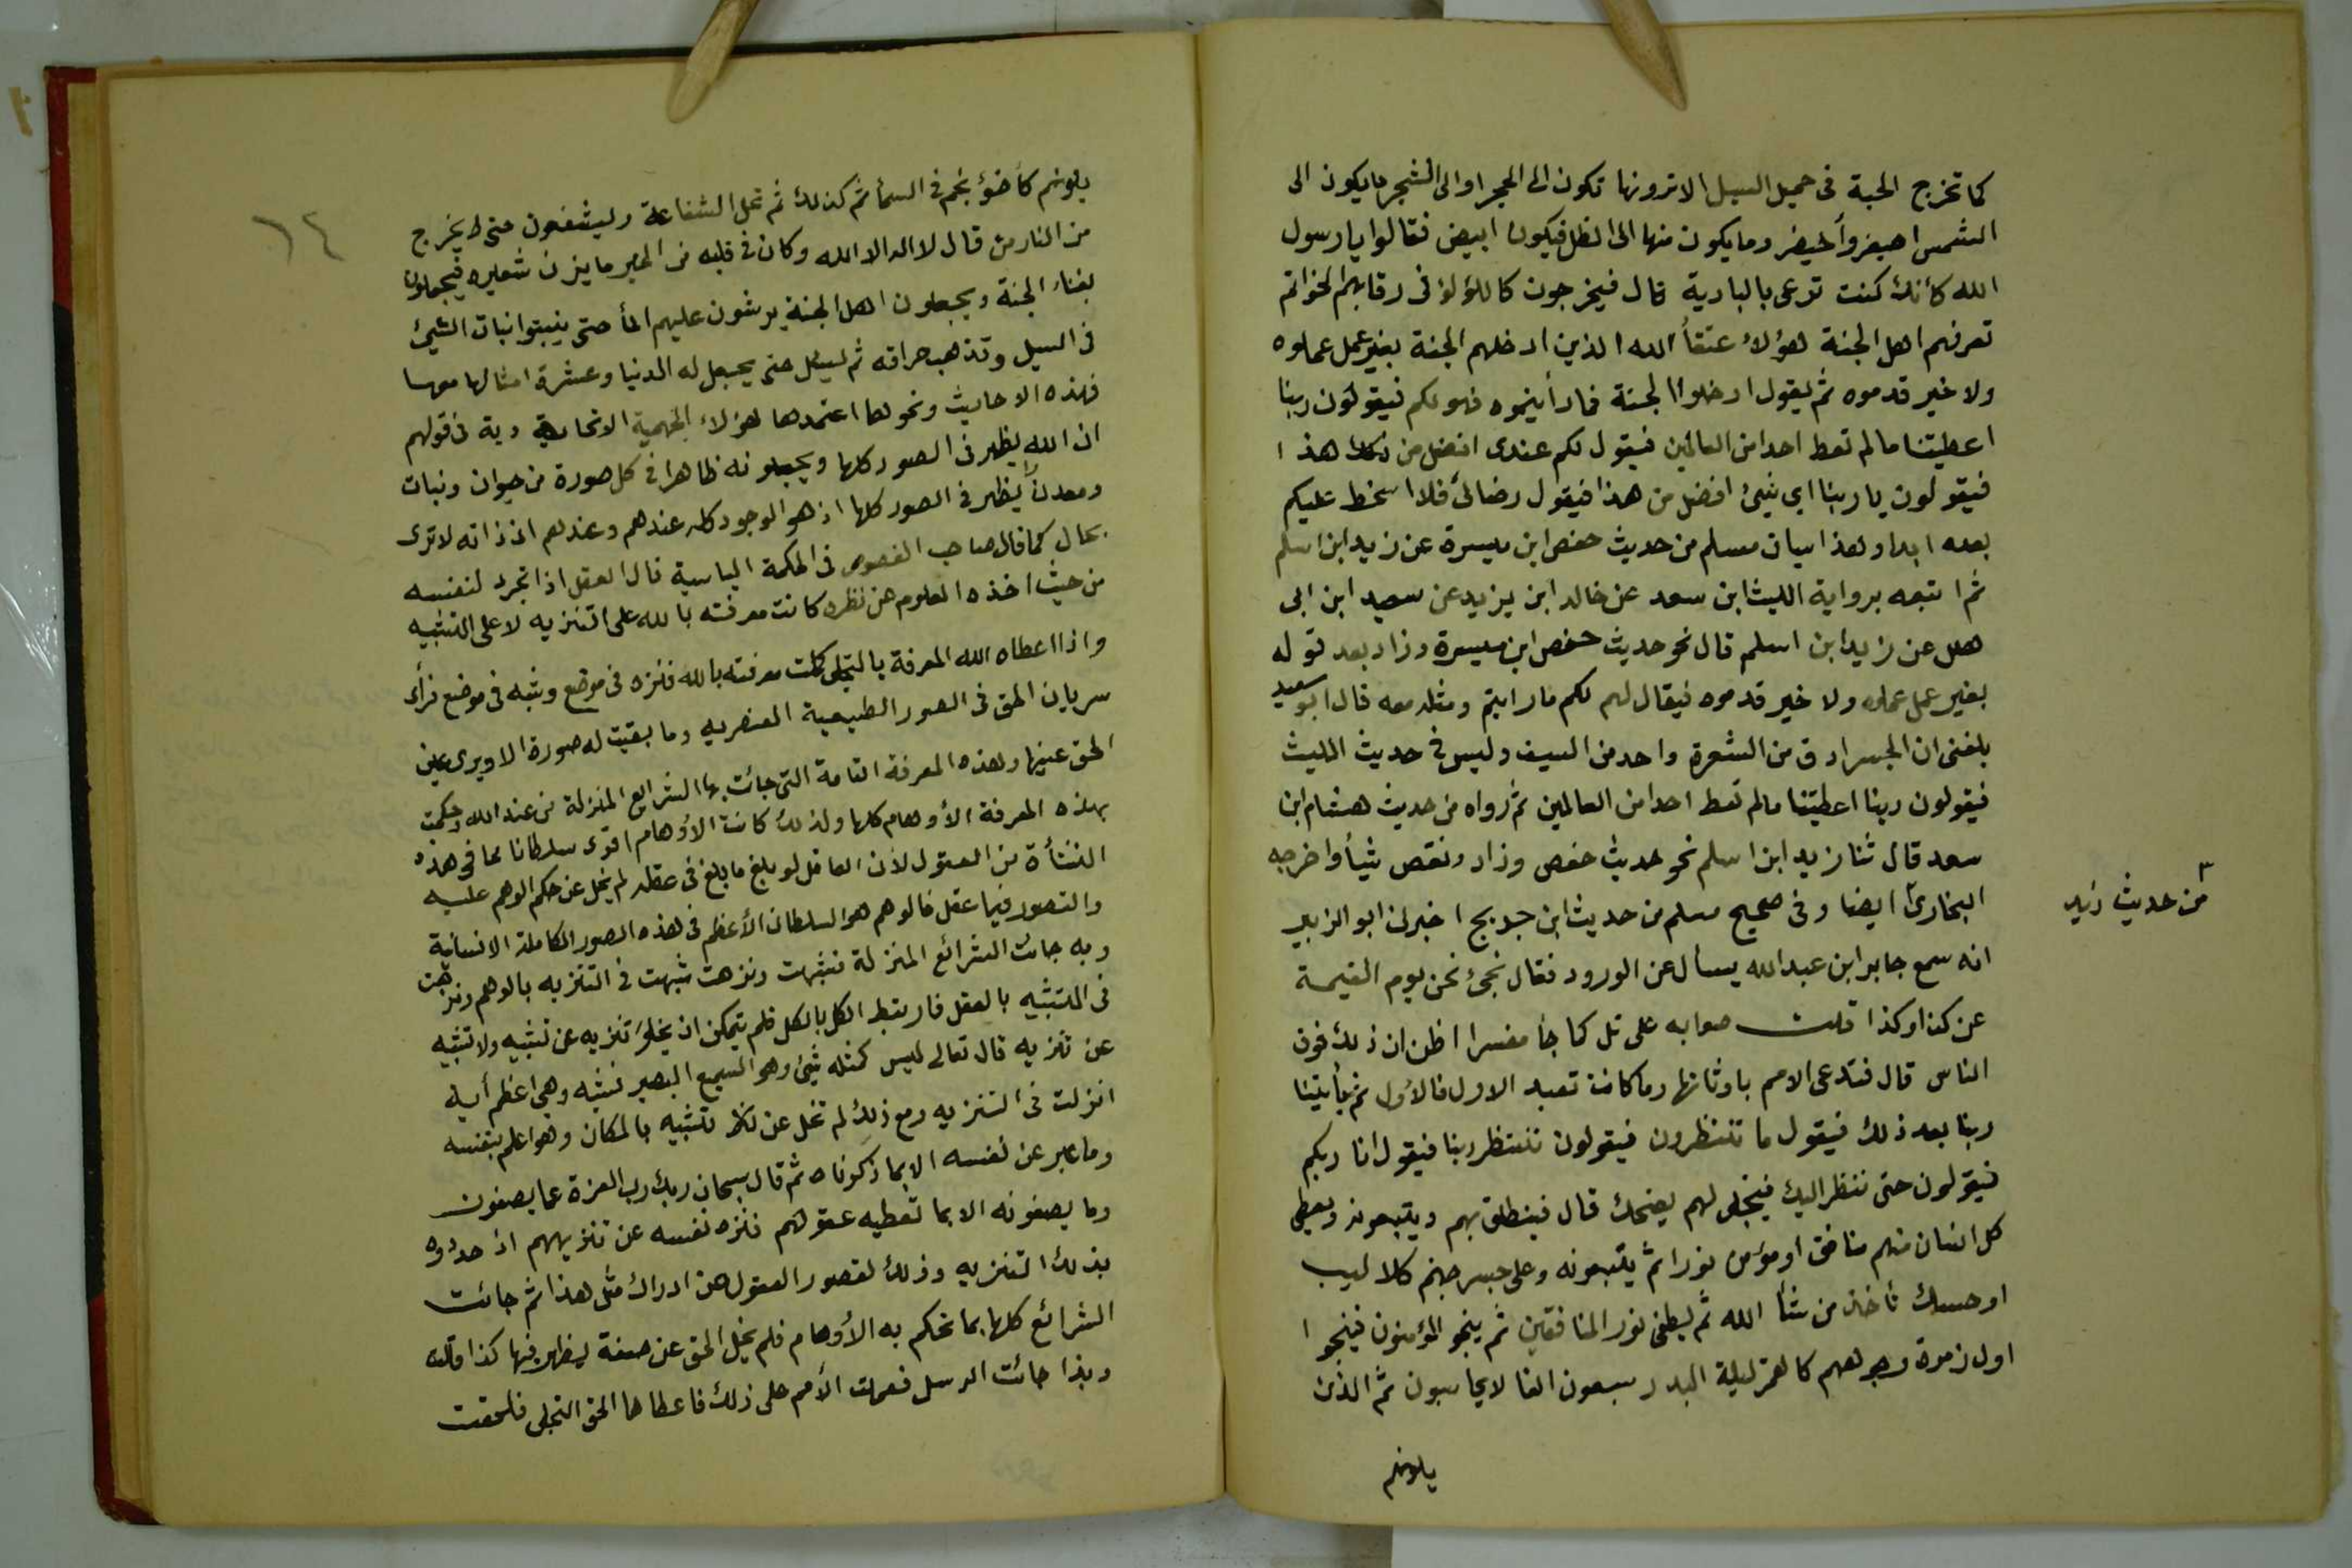 كما تخرج الحبة فى حميل السيل الا ترونها تكون الى الحجر او الى الشجر ما يكون الى
الشمس اصيفر وأخيضر وما يكون منها الى الظل فيكون ابيض فقالوا يا رسول
الله كأنك كنت ترعى بالبادية قال فيخرجون كاللؤلؤ فى رقابهم الخواتم
تعرفهم اهل الجنة هؤلاء عتقاء الله الذين ادخلهم الجنة بغير عمل عملوه
ولا خير قدموه ثم يقول ادخلوا الجنة فما رأيتموه فهو لكم فيقولون ربنا
اعطيتنا ما لم تعط احدا من العالمين فيقول لكم عندى افضل من هذا
فيقولون يا ربنا اي شيئ افضل من هذا فيقول رضائى فلا اسخط عليكم
بعده ابدا وهذا سياق مسلم من حديث حفص ابن ميسرة عن زيد ابن اسلم
ثم اتبعه برواية الليث ابن سعد عن خالد ابن يزيد عن سعيد ابن ابى
هلال عن زيد ابن اسلم قال نحو حديث حفص ابن ميسرة وزاد بعد قوله
بغير عمل عملوه ولا خير قدموه فيقال لهم لكم ما رايتم ومثله معه قال ابو سعيد
بلغنى ان الجسر ادق من الشعرة واحد من السيف وليس فى حديث الليث
فيقولون ربنا اعطيتنا ما لم تعط احدا من العالمين ثم رواه من حديث هشام ابن
سعد قال ثنا زيد ابن اسلم نحو حديث حفص وزاد ونقص شيأ واخرجه
البخارى ايضا وفى صحيح مسلم من حديث ابن جريج اخبرنى ابو الزبير
من حديث زيد
انه سمع جابر ابن عبدالله يسأل عن الورود فقال نجئ نحن يوم القيمة
عن كذا وكذا قلت صوابه على تل كما جأ مفسرا اظن ان ذلك فوق
الناس قال فتدعى الامم باوثانها وما كانت تعبد الاول فالاول ثم يأتينا
ربنا بعد ذلك فيقول ما تنتظرون فيقولون ننتظر ربنا فيقول انا ربكم
فيقولون حتى ننظر اليك فيتجلى لهم يضحك قال فينطلق بهم ويتبعونه ويعطى
كل انسان منهم منافق او مؤمن نورا ثم يتبعونه وعلى جسر جهنم كلاليب
او حسك تأخذ من شأ الله ثم يطفى نور المنافقين ثم ينجو المؤمنون فينجوا
اول زمرة وجوههم كالقمر ليلة البدر سبعون الفا لا يحاسبون ثم الذين
يلونهم
١٤
يلونهم كأضوء نجم فى السمأ ثم كذلك ثم تحل الشفاعة ويشفعون حتى يخرج
من النار من قال لا اله الا الله وكان فى قلبه من الخير ما يزن شعيره فيجعلون
بفناء الجنة ويجعلون اهل الجنة يرشون عليهم المأ حتى ينبتوا نبات الشيئ
فى السيل وتذهب حراقه ثم ليسأل حتى يجعل له الدنيا وعشرة امثالها معها
فهذه الاحاديث ونحوها اعتمدها هؤلاء الجهمية الاتحادية فى قولهم
ان الله يظهر فى الصور كلها ويجعلونه ظاهرا فى كل صورة من حيوان ونبات
ومعدن يظهر فى الصور كلها اذ هو الوجود كله عندهم وعندهم ان ذاته لا ترى
بحال كما قال صاحب الفصوص فى الحكمة الياسية قال العقل اذا تجرد لنفسه
من حيث اخذه العلوم عن نظره كانت معرفته بالله على التنزيه لا على التشبيه
واذا اعطاه الله المعرفة بالتجلى كملت معرفته بالله فنزه فى موضع وشبه فى موضع فرأى
سريان الحق فى الصور الطبيعية العنصريه وما بقيت له صورة الا ويرى عين
الحق عينها وهذه المعرفة التامة التى جائت بها الشرايع المنزلة من عند الله وحكمت
بهذه المعرفة الأوهام كلها ولذلك كانت الأوهام اقوى سلطانا فى هذه
النشأة من العقول لأن العاقل لو بلغ ما بلغ فى عقله لم يخل عن حكم الوهم عليه
والتصور فيما عقل فالوهم هو السلطان الأعظم فى هذه الصور الكاملة الانسانية
وبه جائت الشرائع المنزلة فشبهت ونزهت شبهت فى التنزيه بالوهم ونزهت
فى التشبيه بالعقل فارتبط الكل بالكل فلم يتمكن ان يخلو تنزيه عن تشبيه ولا تشبيه
عن تنزيه قال تعالى ليس كمثله شيئ وهو السميع البصير فشبه وهى اعظم أية
انزلت فى التنزيه ومع ذلك لم تخل عن تشبيه بالمكان وهو اعلم بنفسه
وما عبر عن نفسه الا بما ذكرناه ثم قال سبحان ربك رب العزة عما يصفون
وما يصفونه الا بما تعطيه عقولهم فنزه نفسه عن تنزيههم اذ حددوه
بذلك التنزيه وذلك لقصور العقول عن ادراك مثل هذا ثم جائت
الشرائع كلها بما تحكم به الأوهام فلم يخل الحق عن صفة يظهر فيها كذا قالت
وبذا جائت الرسل فعملت الأمم على ذلك فاعطاها الحق التجلى فلحقت